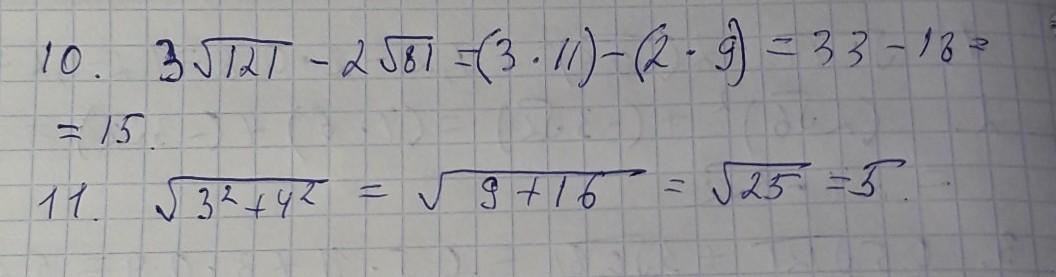 10. 3√121 - 2√81 = (3 · 11) - (2 · 9) = 33 - 18 =
= 15.
11. √3²+4² = √9+16 = √25 = 5.